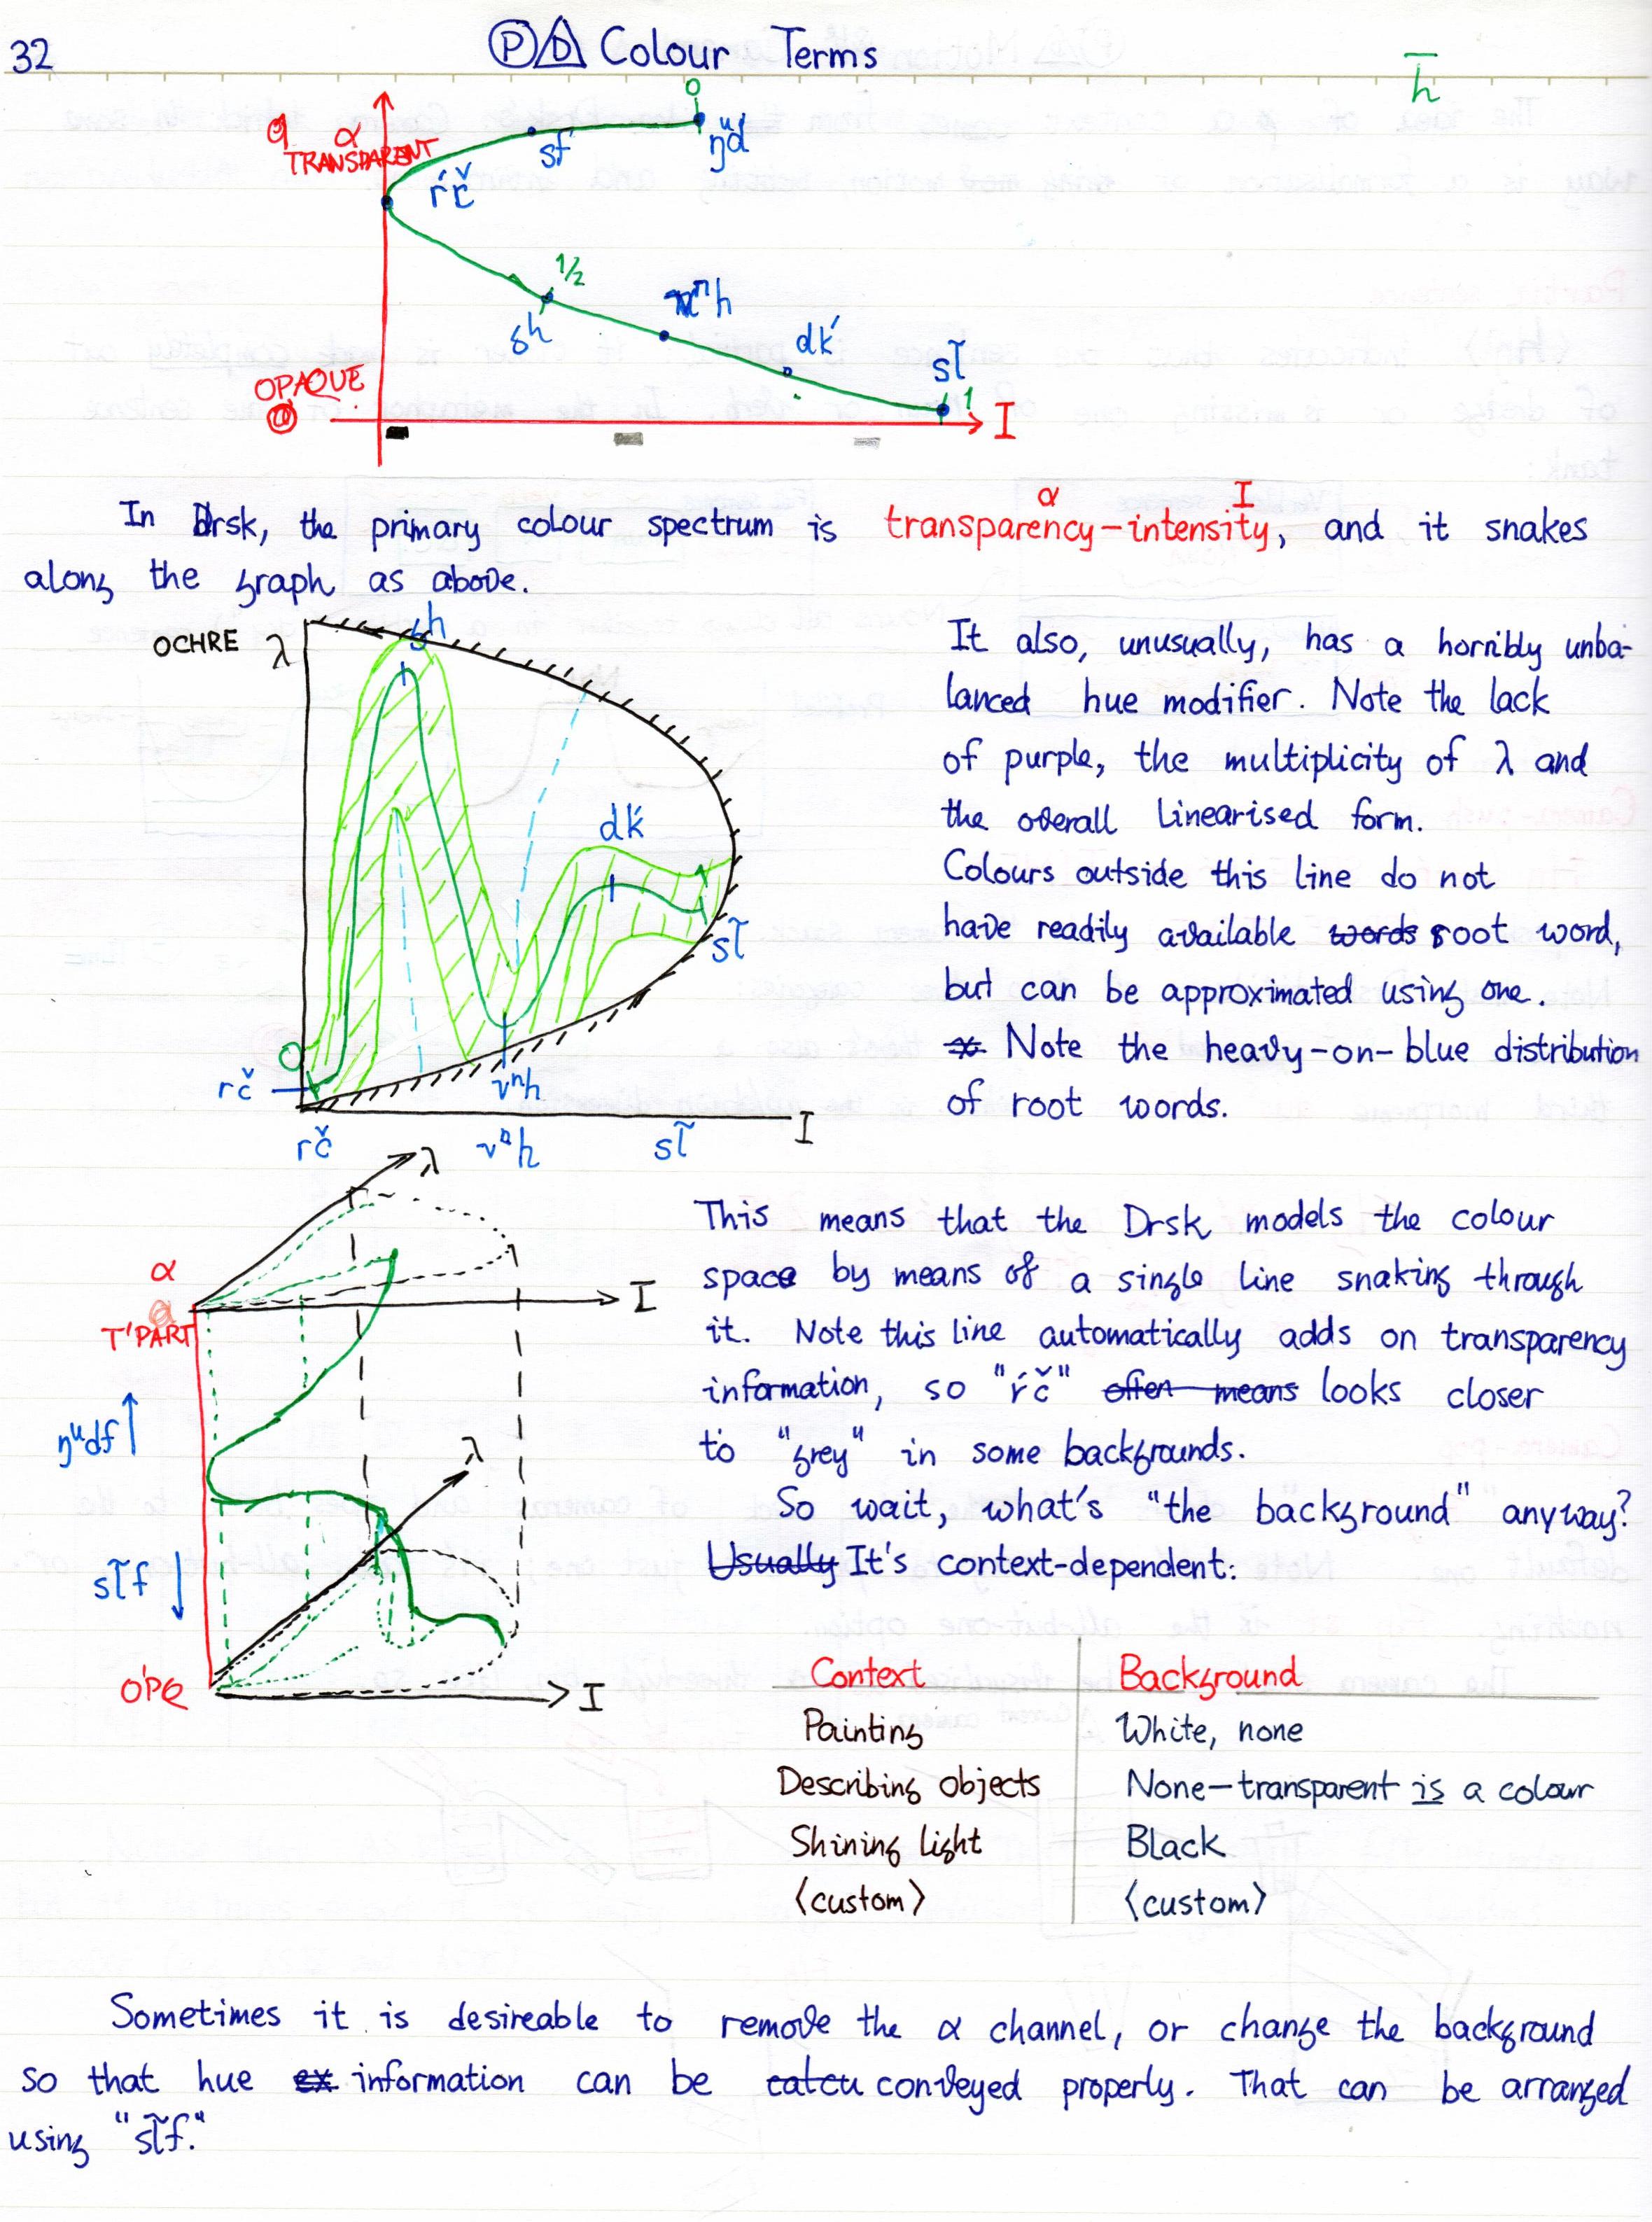 32
PD Colour Terms
ħ
α
TRANSPARENT
0
sf
ŋᵘd
ŕč
1/2
ʰ
ⁿh
dḱ
sl̃
1
OPAQUE
I
α I
In Drsk, the primary colour spectrum is transparency-intensity, and it snakes
along the graph as above.
OCHRE λ
dḱ
sl̃
0
rč
vⁿh
I
rč vⁿh sl̃
It also, unusually, has a horribly unba-
lanced hue modifier. Note the lack
of purple, the multiplicity of λ and
the overall linearised form.
Colours outside this line do not
have readily available words root word,
but can be approximated using one.
Note the heavy-on-blue distribution
of root words.
λ
α
T'PART
I
ŋᵘdf ↑
λ
sl̃f ↓
O'PQ
I
This means that the Drsk models the colour
space by means of a single line snaking through
it. Note this line automatically adds on transparency
information, so "ŕč" often means looks closer
to "grey" in some backgrounds.
So wait, what's "the background" anyway?
Usually It's context-dependent:
Context Background
Painting White, none
Describing objects None-transparent is a colour
Shining light Black
⟨custom⟩ ⟨custom⟩
Sometimes it is desireable to remove the α channel, or change the background
so that hue ex information can be conveyed properly. That can be arranged
using "sl̃f."